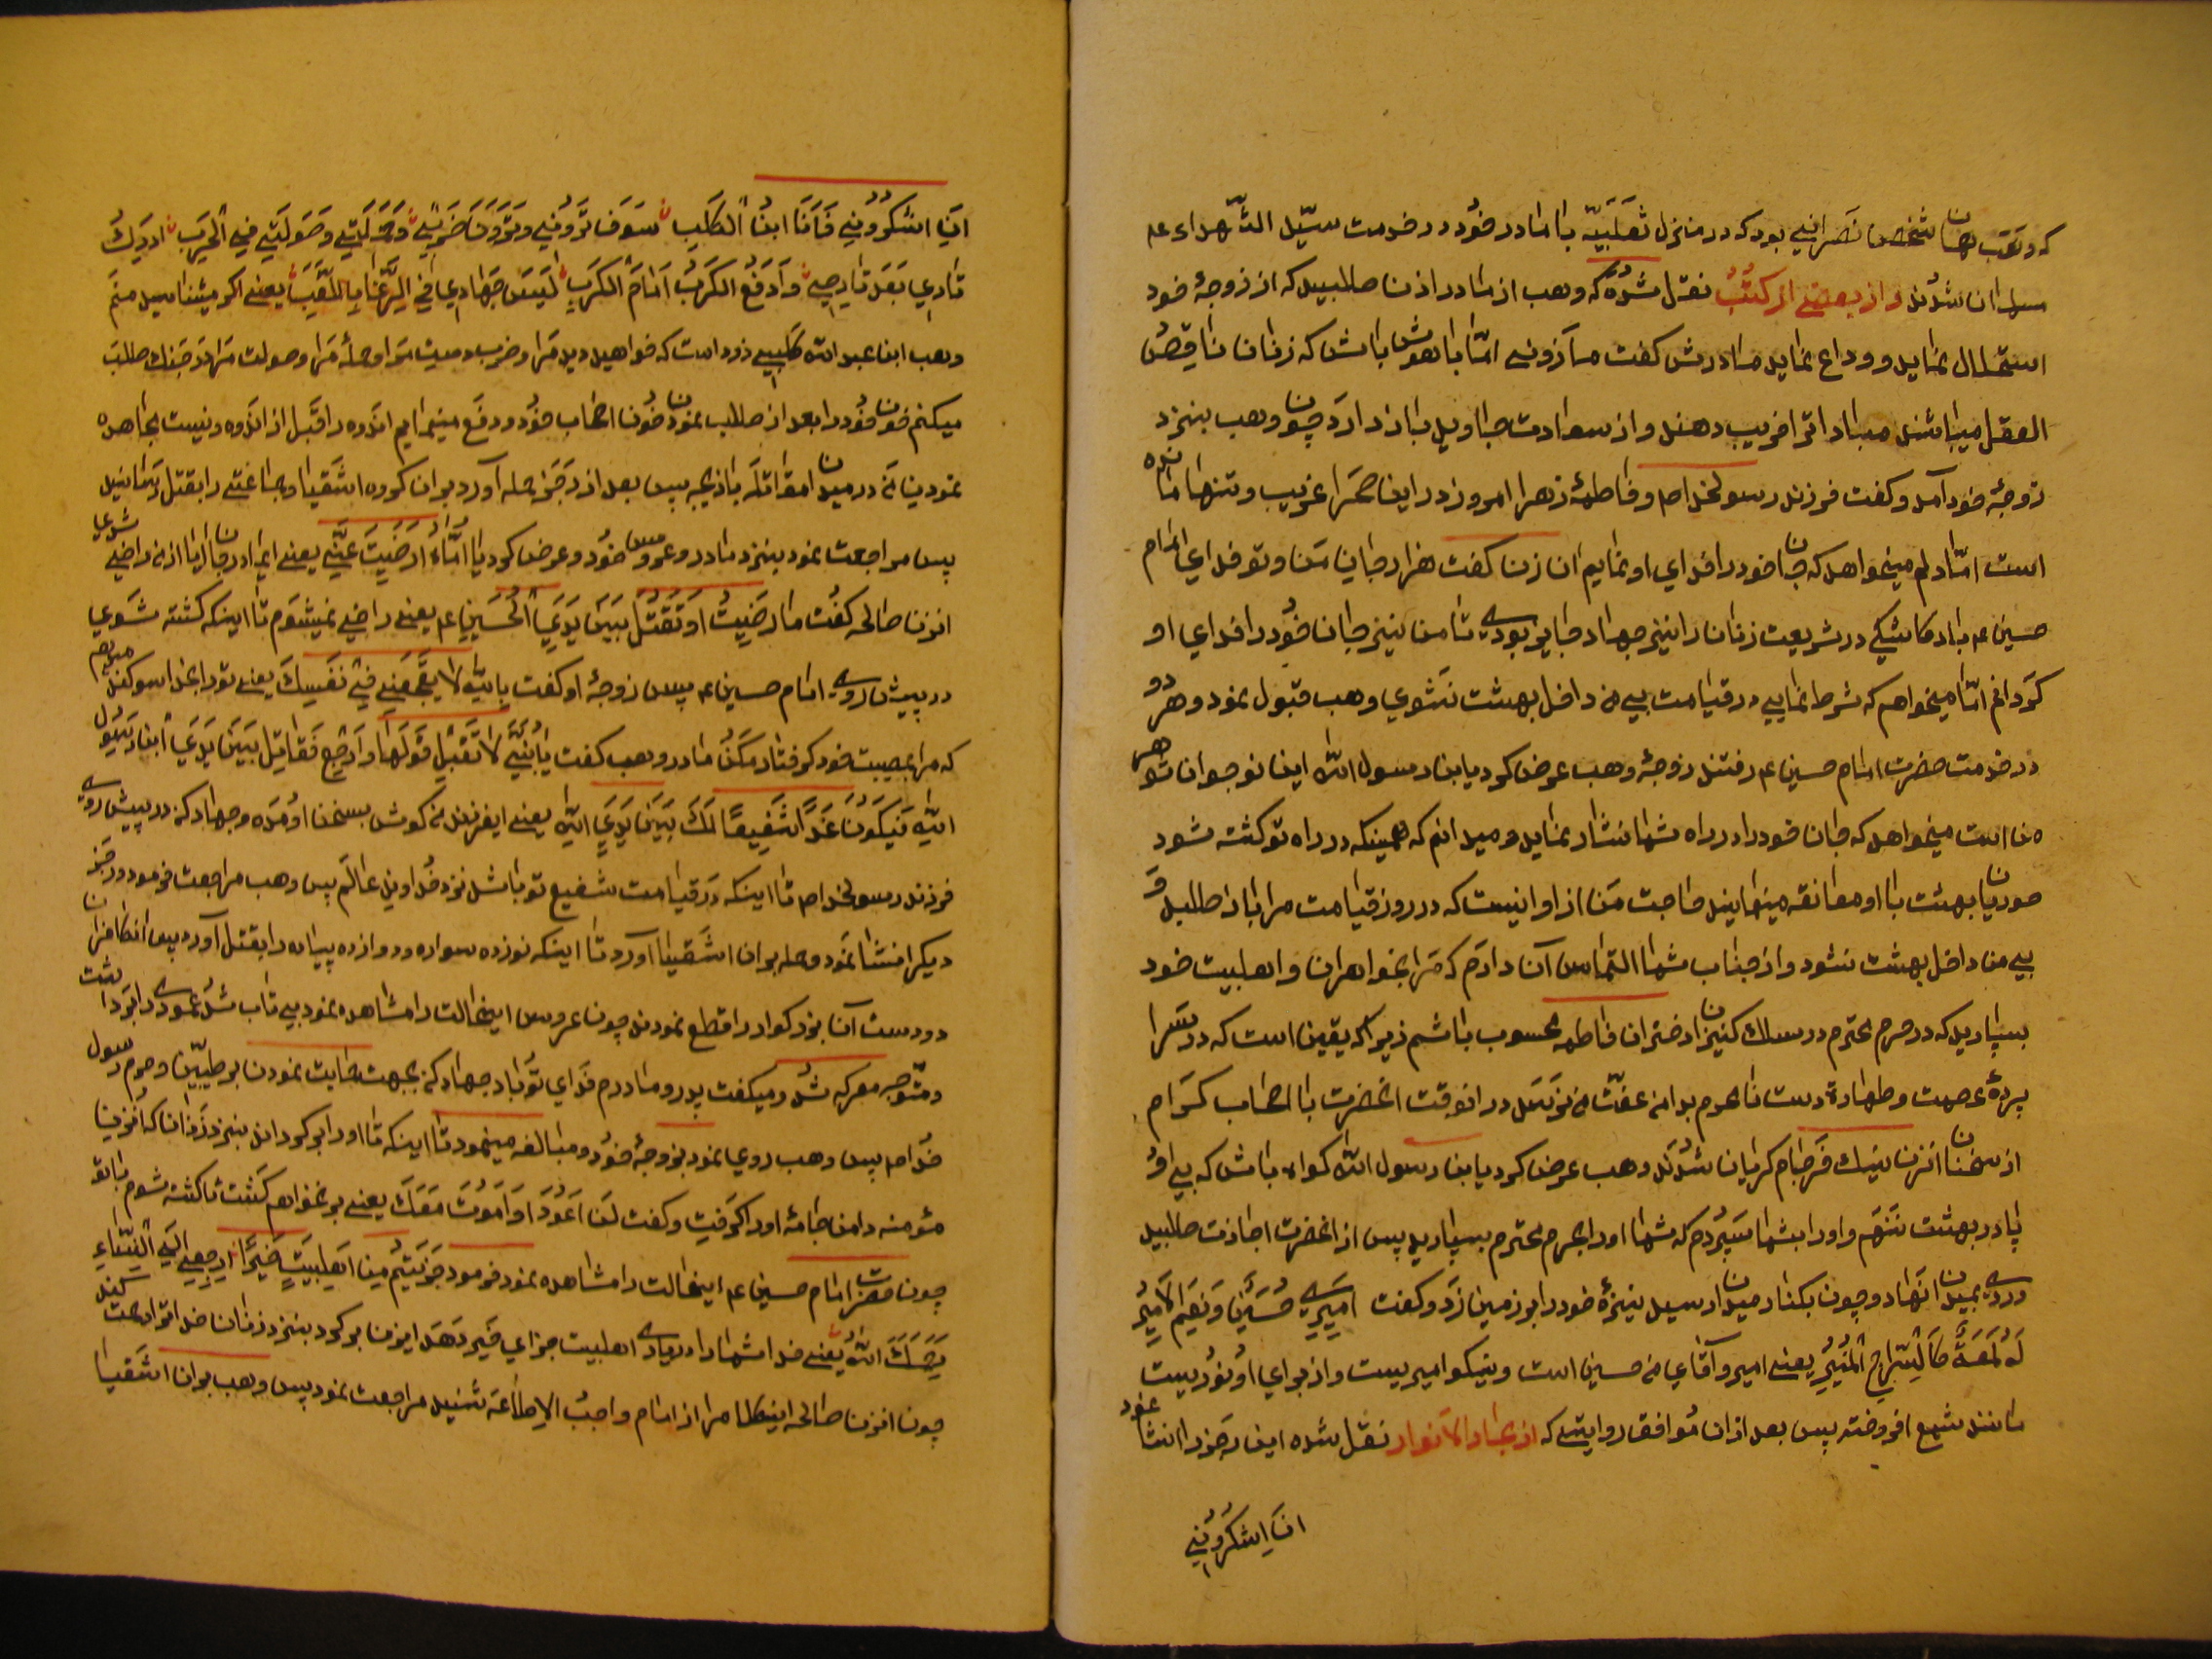 که وهب همان شخص نصرانی بود که در منزل ثعلبیّه با مادر خود در خدمت سیّد الشّهداء عم
مسلمان شدند و از بعضی از کتب نقل شده که وهب از مادر اذن طلبید که از زوجهٔ خود
استحلال نماید و وداع نماید مادرش گفت مأذونی امّا باهوش باش که زنان ناقص
العقل میباشند مباد اترا فریب دهند و از سعادت جاوید باز دارد چون وهب بنزد
زوجهٔ خود آمد و گفت فرزند رسولخدا ص و فاطمهٔ زهرا امروز در این صحرا غریب و تنها مانده
است امّا دلم میخواهد که جان خود را فدای او نمایم ان زن گفت هزار جان من و تو فدای امام
حسین عم باد کاشکی در شریعت زنان را نیز جهاد جایز بودی تا من نیز جان خود را فدای او
کردانم امّا میخواهم که شرط نمایی در قیامت بی من داخل بهشت نشوی وهب قبول نمود و هر دو
در خدمت حضرت امام حسین عم رفتند زوجهٔ وهب عرض کرد یابن رسول الله این نوجوان شوهر
من است میخواهد که جان خود را در راه شما نثار نماید و میدانم که همینکه در راه تو کشته شود
حوریان بهشت با او معانقه مینمایند حاجت من از او اینست که در روز قیامت مرا باز طلبد و
بی من داخل بهشت نشود و از جناب شما التماس آن دارم که مرا بخواهران و اهلبیت خود
بسپارید که در حرم محترم در سلک کنیزان دختران فاطمه محسوب باشم زیرا که یقین است که در سرا
پردهٔ عصمت و طهارة دست نامحرم بدامن عفّت من نرسد در انوقت انحضرت با اصحاب کرام
از سخنان انزن نیک فرجام گریان شدند وهب عرض کرد یابن رسول الله گواه باش که بی او
پا در بهشت ننهم و او را بشما سپردم که شما او را بحرم محترم بسپارید پس از انحضرت اجازت طلبید
و روی بمیدان نهاد و چون بکنار میدان رسید نیزهٔ خود را بر زمین زد و گفت امیری حسین و نعم الامیر
له لمعة کالسّراج المنیر یعنی امیر و آقای من حسین است و نیکو امیریست و از برای او نوریست
مانند شمع افروخته پس بعد از ان موافق روایتی که از بحار الانوار نقل شده این رجز را انشا نمود
ان اشکرونی
ان اشکرونی فانا ابن الکلب سوف ترونی و ترون ضربی و حملتی و صولتی فی الحرب ادرک
ثاری بعد ثار صحبی و ادفع الکرب امام الکرب لیس جهادی فی الوغا باللّعب یعنی اگر میشناسید منم
وهب ابن عبد الله کلبی زود است که خواهید دید مرا و ضرب دست مرا و حملهٔ مرا و صولت مرا در جنک طلب
میکنم خون خود را بعد از طلب نمودن خون اصحاب خود و دفع مینمایم اندوه را قبل از اندوه و نیست مجاهده
نمودن من در میدان مقاتله بازیچه پس بعد از رجز حمله آورد بر ان کروه اشقیا و جماعتی را بقتل رسانید
پس مراجعت نمود بنزد مادر و عروس خود و عرض کرد یا امّاه ارضیت عنّی یعنی ایمادر جان ایا از من راضی شدی
انزن صالحه گفت ما رضیت او تقتل بین یدی الحسین عم یعنی راضی نمیشوم تا اینکه کشته شوی
در پیش روی امام حسین عم پس زوجهٔ او گفت بالله لا تفجعنی فی نفسک یعنی ترا بخدا سوکند میدهم
که مرا بمصیبت خود گرفتار مکن مادر وهب گفت یا بنیّ لا تقبل قولها و ارجع فقاتل بین یدی ابن رسول
الله فیکون غدا شفیعًا لک بین یدی الله یعنی ایفرزند من کوش بسخن او مده و جهاد کن در پیش روی
فرزند رسولخدا ص تا اینکه در قیامت شفیع تو باشد نزد خداوند عالم پس وهب مراجعت فرمود و رجز
دیگر انشا نمود و حمله بر ان اشقیا آورد تا اینکه نوزده سواره و دوازده پیاده را بقتل آورد پس ان کافران
دو دست آن بزرکوار را قطع نمودند چون عروس اینحالت را مشاهده نمود بی تاب شد عمودی را برداشت
و متوجّه معرکه شد و میگفت پدر و مادرم فدای تو باد جهاد کن بجهت حمایت نمودن بر طیّبین و حرم رسول
خدا ص پس وهب روی نمود بزوجهٔ خود و مبالغه مینمود تا اینکه تا او را برگرداند بنزد زنان که انزن
مؤمنه دامن جامهٔ او را گرفت و گفت لن اعود او اموت معک یعنی بر نخواهم گشت تا کشته شوم با تو
چون حضرت امام حسین عم اینحالت را مشاهده نمود فرمود جزیتم من اهلبیت خیرًا ارجعی الی النّساء
یرحمک الله یعنی خدا شما را در یاری اهلبیت جزای خیر دهد ایزن برکرد بنزد زنان خدا ترا رحمت کند
چون انزن صالحه اینکلام را از امام واجب الاطاعة شنید مراجعت نمود پس وهب بر ان اشقیا